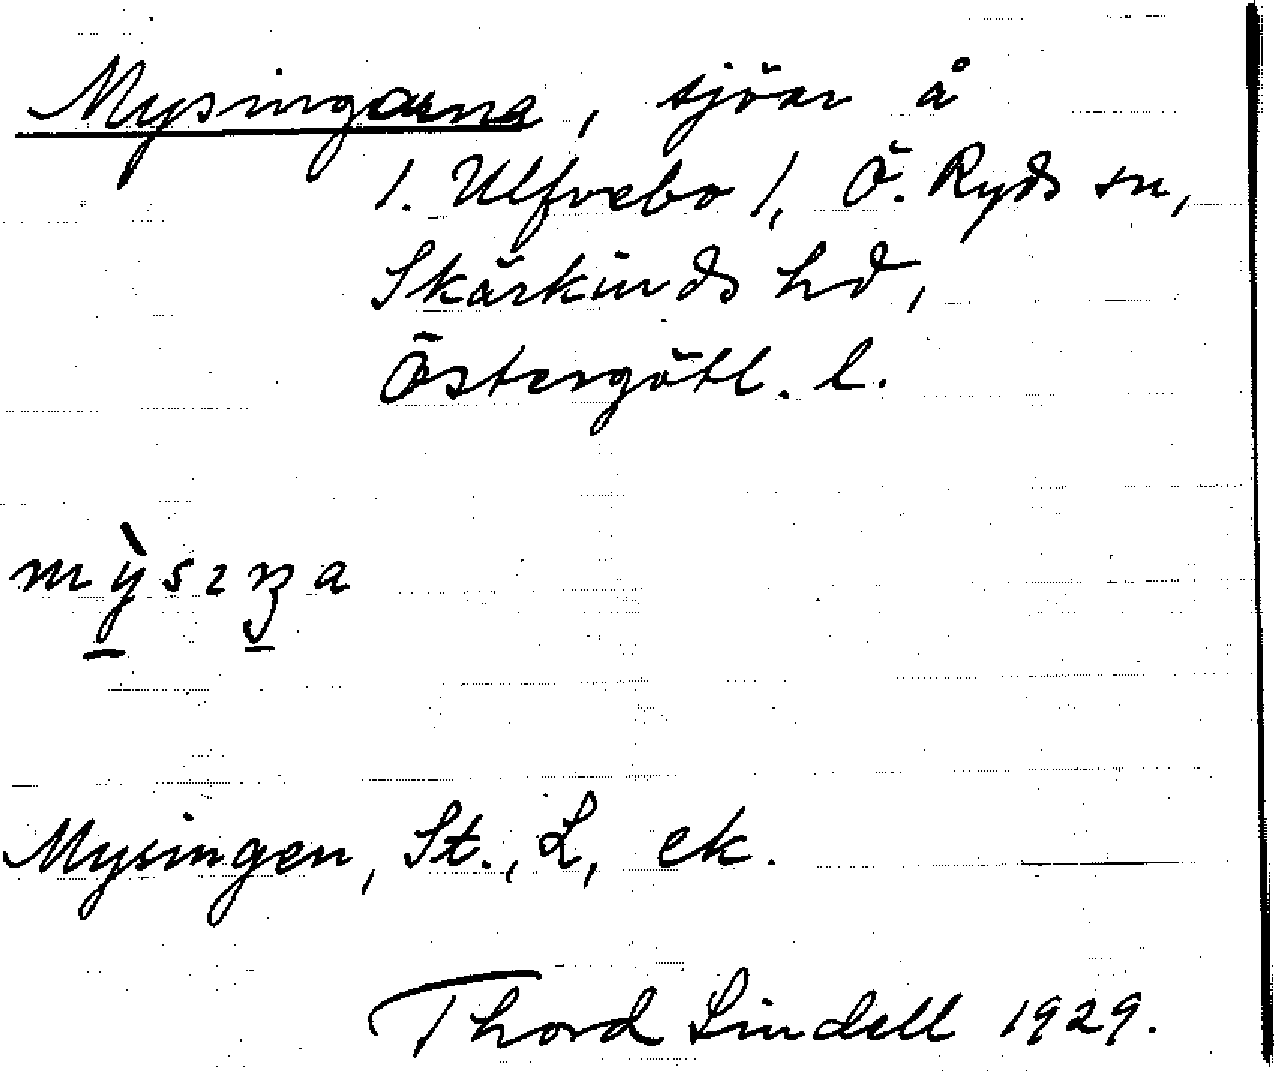 Mysingarna, sjöar å
/. Ulfvebo /, Ö. Ryds sn,
Skärkinds hd,
Östergötl. l.
mỳsıŋa
Mysingen, St., L, ek.
Thord Lindell 1929.